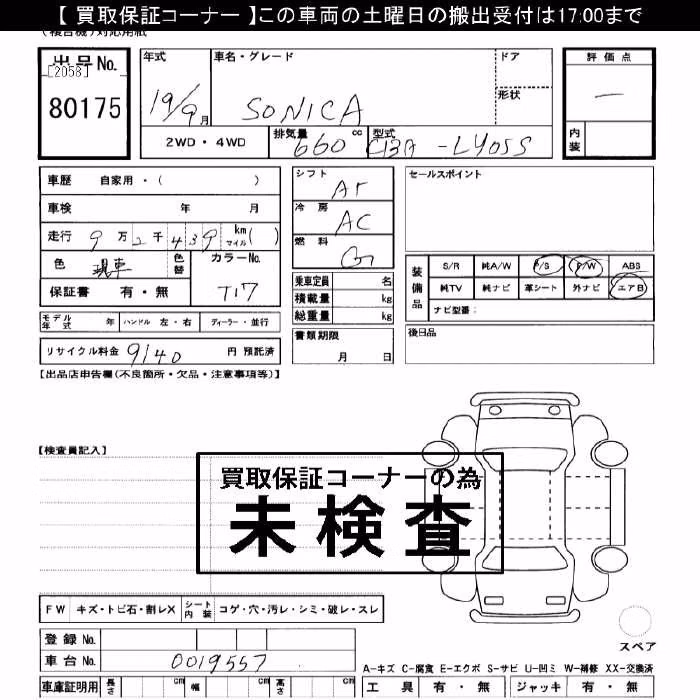 【 買取保証コーナー 】この車両の土曜日の搬出受付は17:00まで
出品No.
[2058]
80175
年式
19/9月
車名・グレード
SONICA
ドア
形状
評価点
―
内装
2WD・4WD
排気量 660 cc
型式 CBA-L405S
車歴 自家用・( )
車検 年 月
走行 9万2千439 km マイル( )
色 現車 色替
カラーNo. T17
保証書 有・無
モデル年式 年 ハンドル 左・右 ディーラー・並行
リサイクル料金 9140 円 預託済
シフト AT
冷房 AC
燃料 G
乗車定員 名
積載量 kg
総重量 kg
書類期限
月 日
セールスポイント
装備品
S/R 純A/W P/S P/W ABS
純TV 純ナビ 革シート 外ナビ エアB
ナビ型番:
後日品
【出品店申告欄(不良箇所・欠品・注意事項等)】
【検査員記入】
買取保証コーナーの為
未検査
FW キズ・トビ石・割レX シート内装 コゲ・穴・汚レ・シミ・破レ・スレ
登録No.
車台No. 0019557
車庫証明用 長さ cm 幅 cm 高さ cm
スペア
A-キズ C-腐食 E-エクボ S-サビ U-凹ミ W-補修 XX-交換済
工具 有・無 ジャッキ 有・無